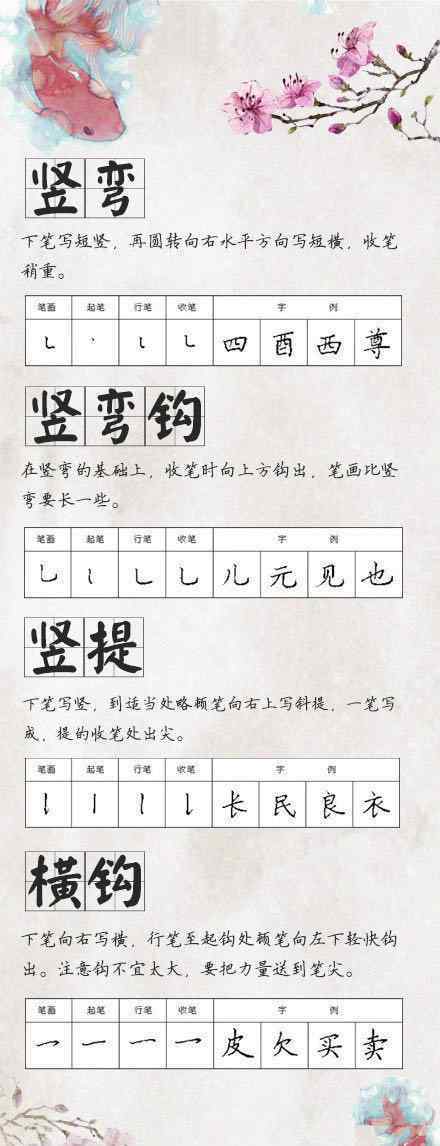 竖弯
下笔写短竖，再圆转向右水平方向写短横，收笔
稍重。
笔画 起笔 行笔 收笔 字 例
㇄ 丶 ㇄ ㇄ 四 酉 西 尊
竖弯钩
在竖弯的基础上，收笔时向上方钩出，笔画比竖
弯要长一些。
笔画 起笔 行笔 收笔 字 例
乚 丨 乚 乚 儿 元 见 也
竖提
下笔写竖，到适当处略顿笔向右上写斜提，一笔写
成，提的收笔处出尖。
笔画 起笔 行笔 收笔 字 例
㇙ 丨 ㇙ ㇙ 长 民 良 衣
横钩
下笔向右写横，行笔至起钩处顿笔向左下轻快钩
出。注意钩不宜太大，要把力量送到笔尖。
笔画 起笔 行笔 收笔 字 例
乛 一 乛 乛 皮 欠 买 卖